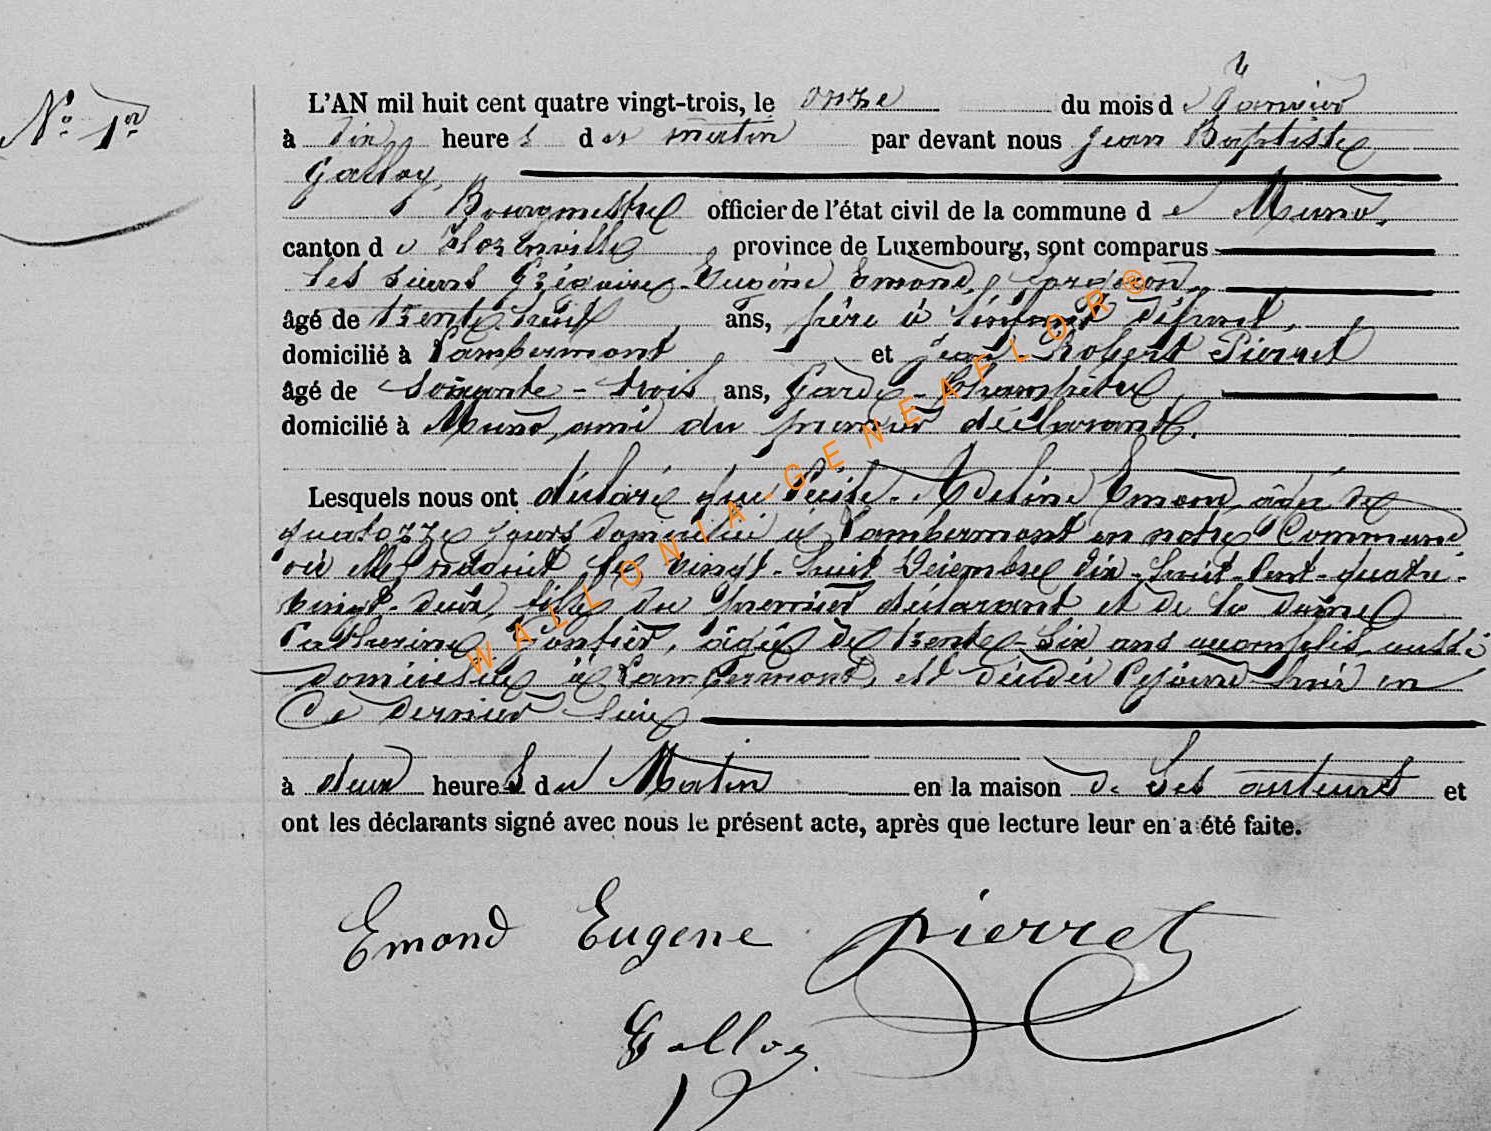 N° 1er
L'AN mil huit cent quatre vingt-trois, le onze du mois de Janvier
à dix heures du matin par devant nous Jean Baptiste
Galloy,
Bourgmestre officier de l'état civil de la commune de Muno,
canton de Florenville, province de Luxembourg, sont comparus
les sieurs Grégoire-Eugène Emond,
âgé de trente huit ans, père à l'enfant défunt,
domicilié à Lambermont, et Jean-Robert Pierret
âgé de soixante-trois ans, Garde-Champêtre,
domicilié à Muno, ami du premier déclarant.
Lesquels nous ont déclaré que Cécile-Adeline Emond, âgée de
quatorze jours domiciliée à Lambermont en notre Commune
où elle naquit le vingt-huit Décembre dix-huit-Cent-quatre-
vingt-deux, fille du premier déclarant et de la dame
Catherine, âgée de trente-six ans accomplis, aussi
domiciliée à Lambermont, est décédée Cejourd'hui en
Ce dernier lieu
à deux heures du Matin en la maison de Ses auteurs et
ont les déclarants signé avec nous le présent acte, après que lecture leur en a été faite.
Emond Eugene Pierret
Galloy
WALLONIA-GENEAFLOR®